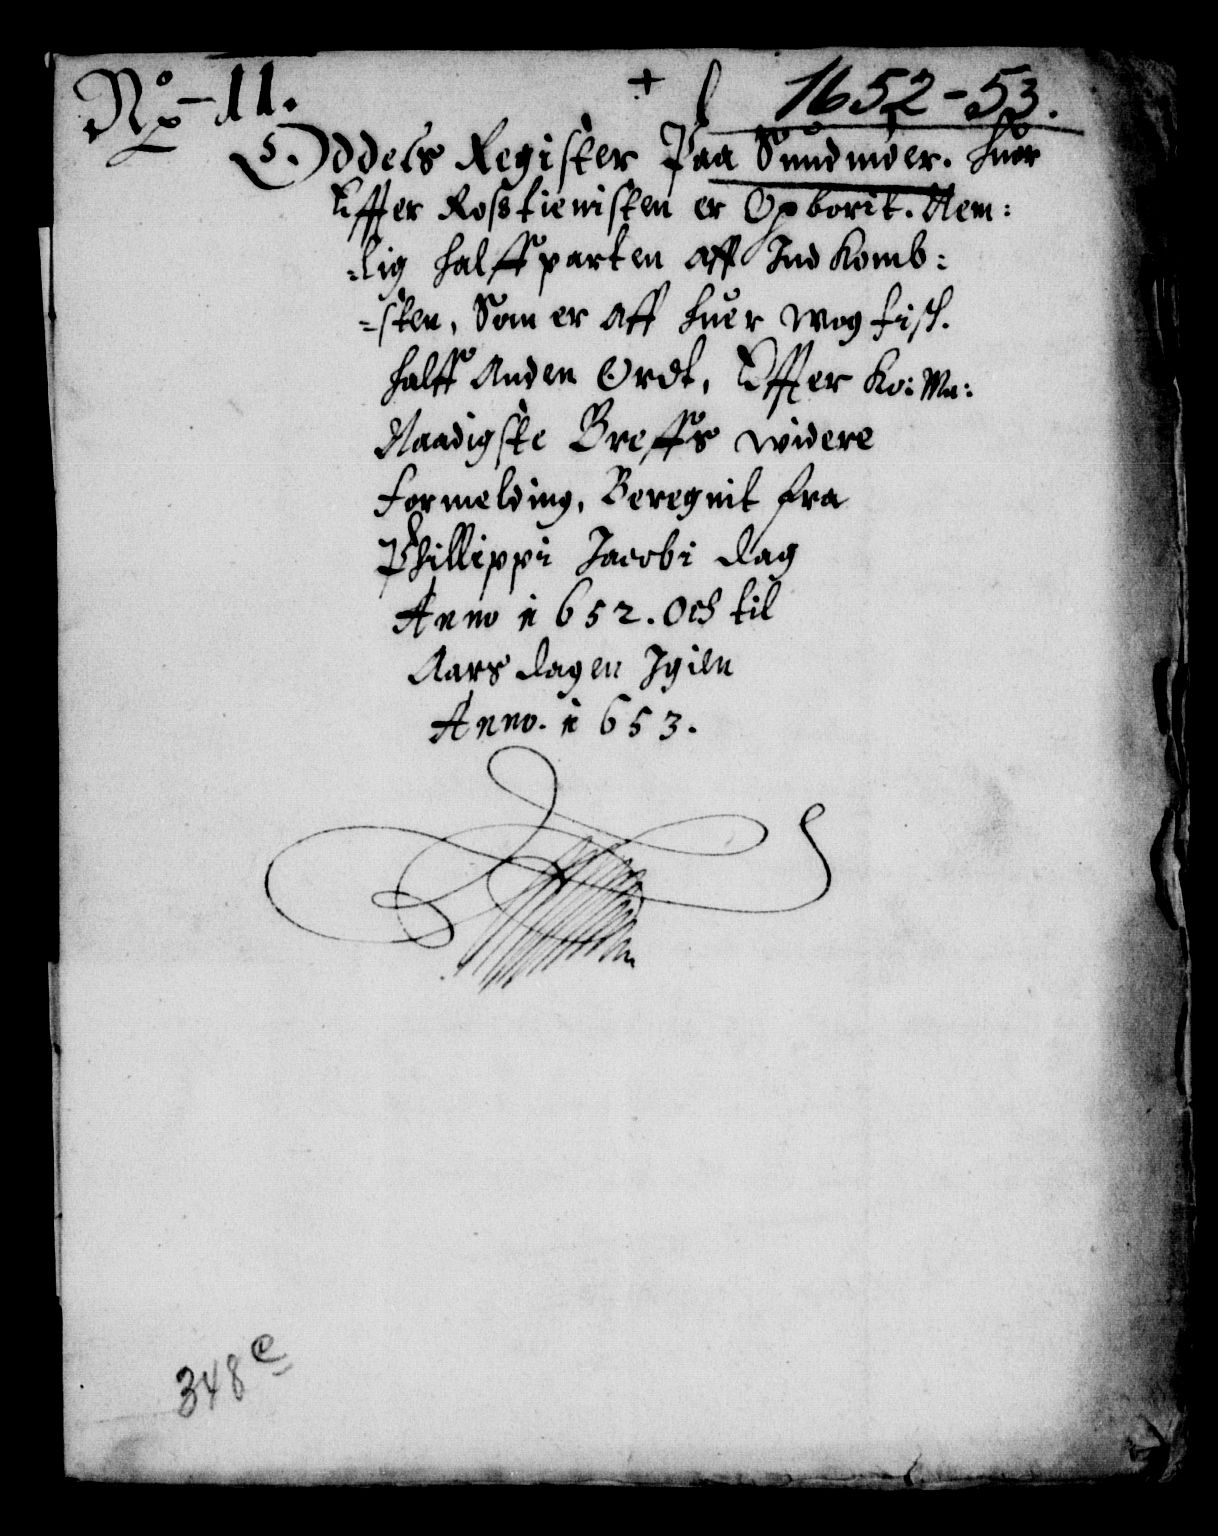 No - 11. + 1652-53.
Oddels Register Paa Sundmöer. huor
Effter Rosstienisten er Opborit. Nem:
:lig halffparten aff Ind Komb:
=sten, Som er Aff huer Wog fisk.
halff Anden Ordt, Effter Ko: Ma:
Naadigste Breffs widere
formelding, Beregnit fra
Phillippi Jacobi dag
Anno 1652. Och til
Aars dagen Igien
Anno. 1653.
348 e